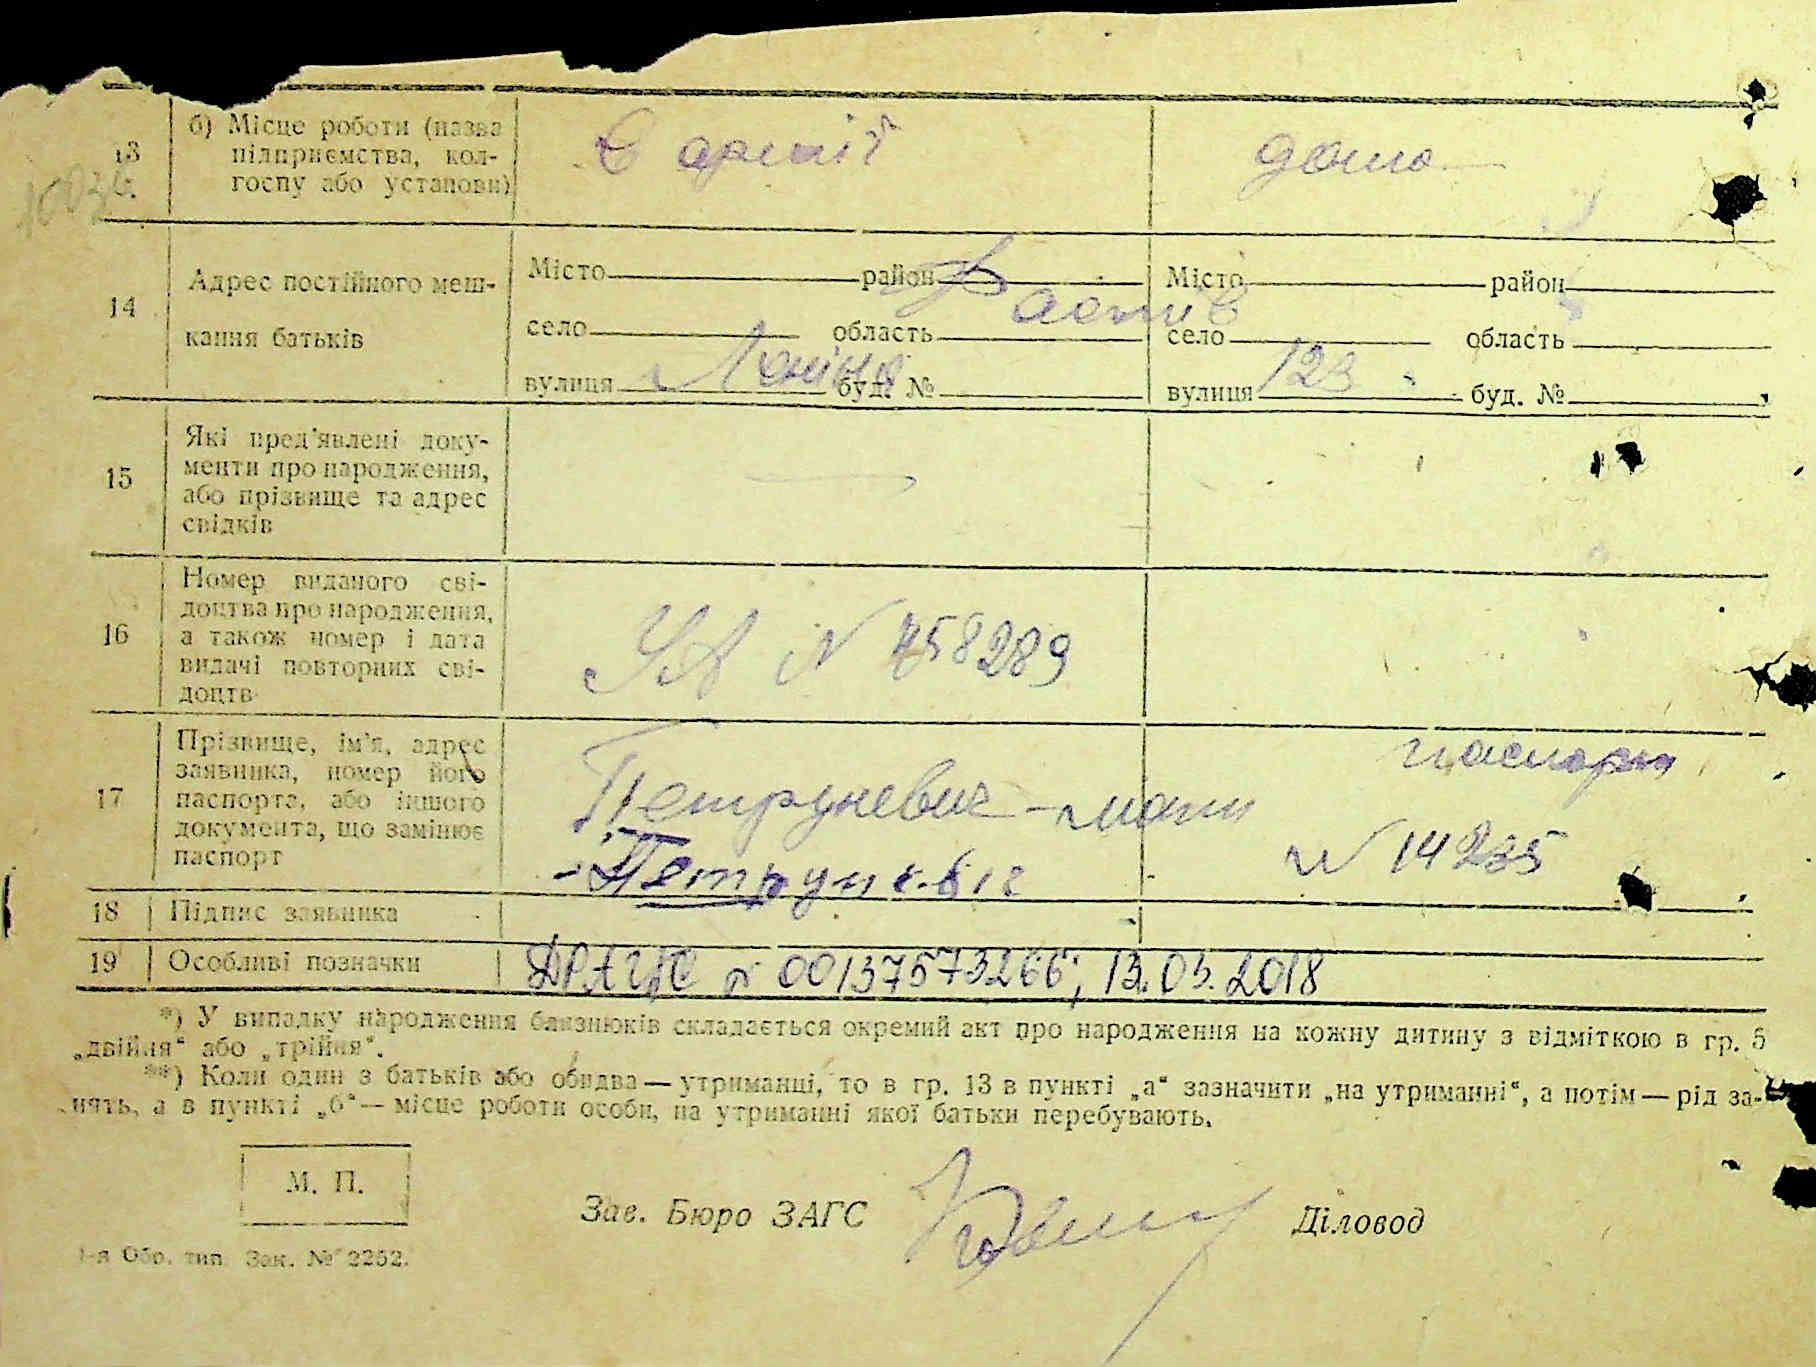 13
б) Місце роботи (назва
підприємства, кол-
госпу або установи)
В армії
дома
14
Адрес постійного меш-
кання батьків
Місто район
село область
вулиця Леніна буд. №
Фастів
Місто район
село область
вулиця 123 буд. №
15
Які пред'явлені доку-
менти про народження,
або прізвище та адрес
свідків
16
Номер виданого сві-
доцтва про народження,
а також номер і дата
видачі повторних сві-
доцтв
УА N 758289
17
Прізвище, ім'я, адрес
заявника, номер його
паспорта, або іншого
документа, що замінює
паспорт
Петруневич - мати
паспорт
N 14235
18 Підпис заявника
Петруневич
19 Особливі позначки
ДРАЦС № 00137573266; 13.03.2018
*) У випадку народження близнюків складається окремий акт про народження на кожну дитину з відміткою в гр. 5
„двійня“ або „трійня“.
**) Коли один з батьків або обидва — утриманці, то в гр. 13 в пункті „а“ зазначити „на утриманні“, а потім — рід за-
нять, а в пункті „б“ — місце роботи особи, на утриманні якої батьки перебувають.
М. П.
Зав. Бюро ЗАГС
Діловод
1-я Обр. тип. Зак. № 2252.